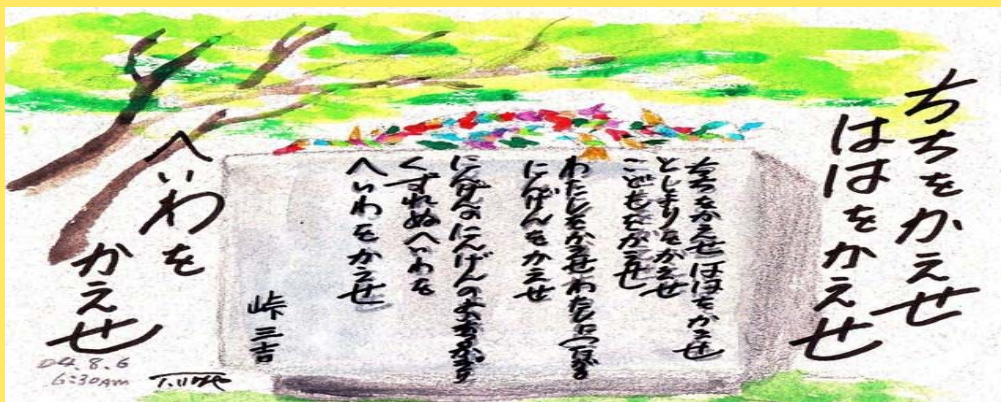 ちちをかえせ
ははをかえせ
ちちをかえせ ははをかえせ
としよりをかえせ
こどもをかえせ
わたしをかえせ わたしにつながる
にんげんをかえせ
にんげんの にんげんのよのあるかぎり
くずれぬへいわを
へいわをかえせ
峠 三吉
へいわを
かえせ
04.8.6
6:30AM